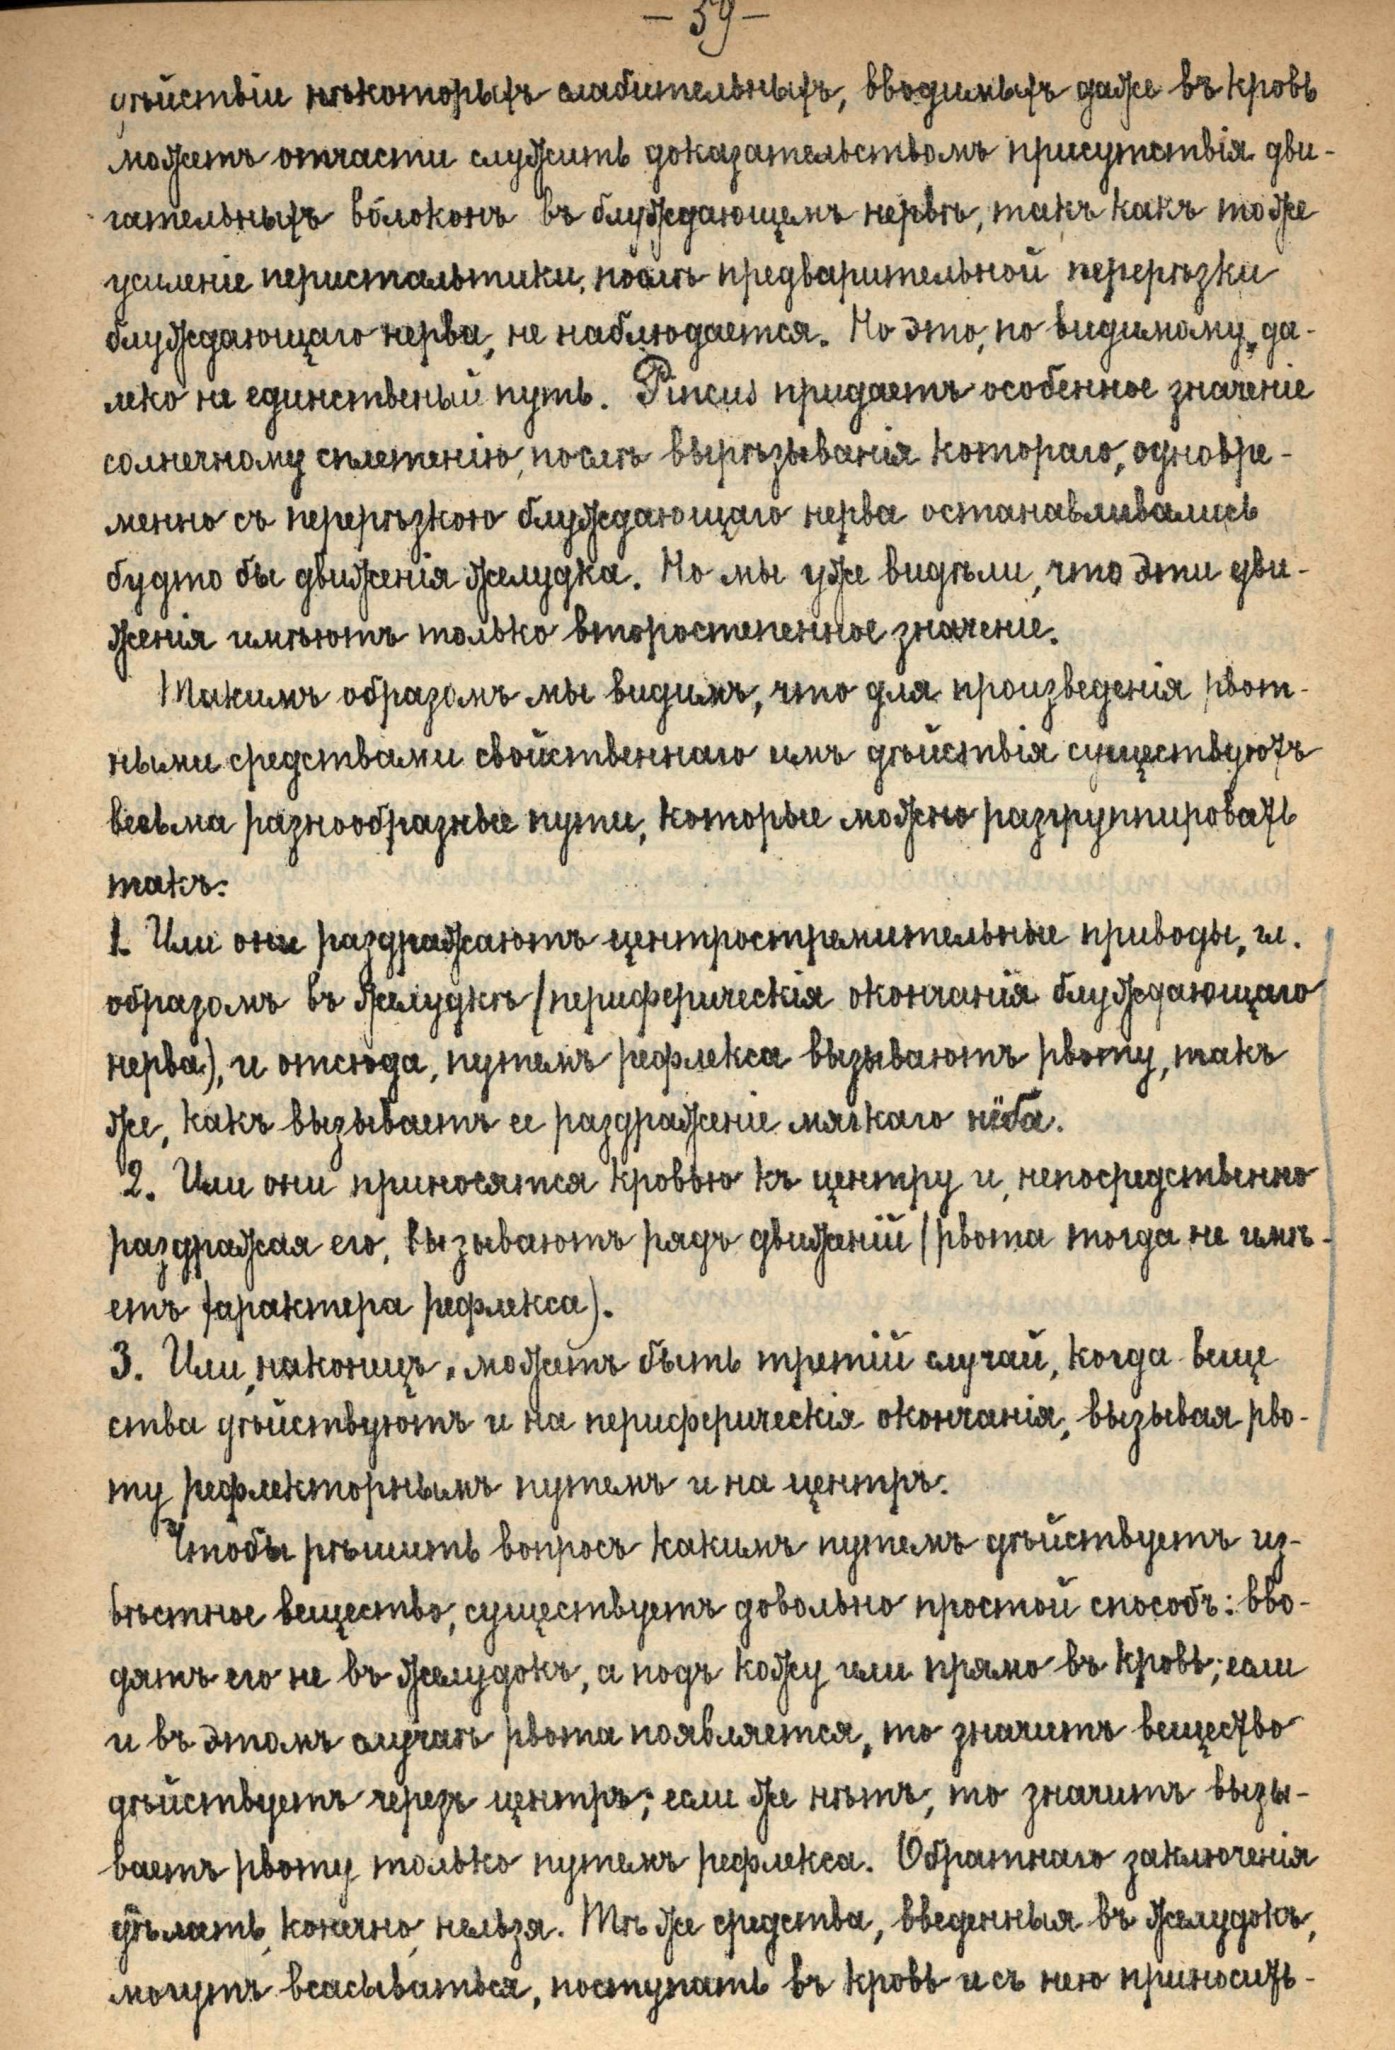 — 59 —
дѣйствіи нѣкоторыхъ слабительныхъ, вводимыхъ даже въ кровь
можетъ отчасти служить доказательствомъ присутствія дви-
гательныхъ волоконъ въ блуждающемъ нервѣ, такъ какъ тоже
усиленіе перистальтики, послѣ предварительной перерѣзки
блуждающаго нерва, не наблюдается. Но это, по видимому, да-
леко не единственый путь. Pincus придаетъ особенное значеніе
солнечному сплетенію, послѣ вырѣзыванія котораго, одновре-
менно съ перерѣзкою блуждающаго нерва останавливались
будто бы движенія желудка. Но мы уже видѣли, что эти дви-
женія имѣютъ только второстепенное значеніе.
Такимъ образомъ мы видимъ, что для произведенія рвот-
ными средствами свойственнаго имъ дѣйствія существуютъ
весьма разнообразные пути, которые можно разгруппировать
такъ:
1. Или они раздражаютъ центростремительные приводы, гл.
образомъ въ желудкѣ (периферическія окончанія блуждающаго
нерва), и отсюда, путемъ рефлекса вызываютъ рвоту, такъ
же, какъ вызываетъ ее раздраженіе мягкаго нёба.
2. Или они приносятся кровью къ центру и, непосредственно
раздражая его, вызываютъ рядъ движеній (рвота тогда не имѣ-
етъ характера рефлекса).
3. Или, наконецъ, можетъ быть третій случай, когда веще
ства дѣйствуютъ и на периферическія окончанія, вызывая рво-
ту рефлекторнымъ путемъ и на центръ.
Чтобы рѣшить вопросъ какимъ путемъ дѣйствуетъ из-
вѣстное вещество, существуетъ довольно простой способъ: вво-
дятъ его не въ желудокъ, а подъ кожу или прямо въ кровь; если
и въ этомъ случаѣ рвота появляется, то значитъ вещество
дѣйствуетъ черезъ центръ; если же нѣтъ, то значитъ вызы-
ваетъ рвоту только путемъ рефлекса. Обратнаго заключенія
дѣлать, конечно, нельзя. Тѣ же средства, введенныя въ желудокъ,
могутъ всасываться, поступать въ кровь и съ нею приносить-